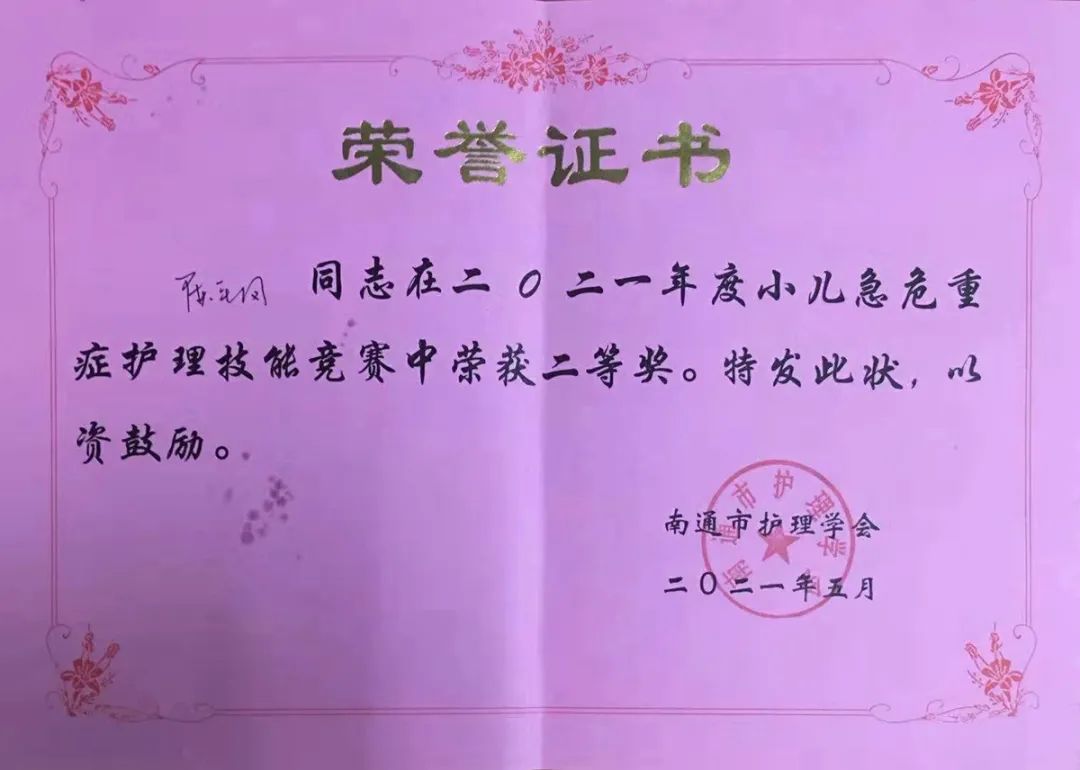 荣誉证书
同志在二〇二一年度小儿急危重
症护理技能竞赛中荣获二等奖。特发此状,以
资鼓励。
南通市护理学会
南通市护理学会
二〇二一年五月